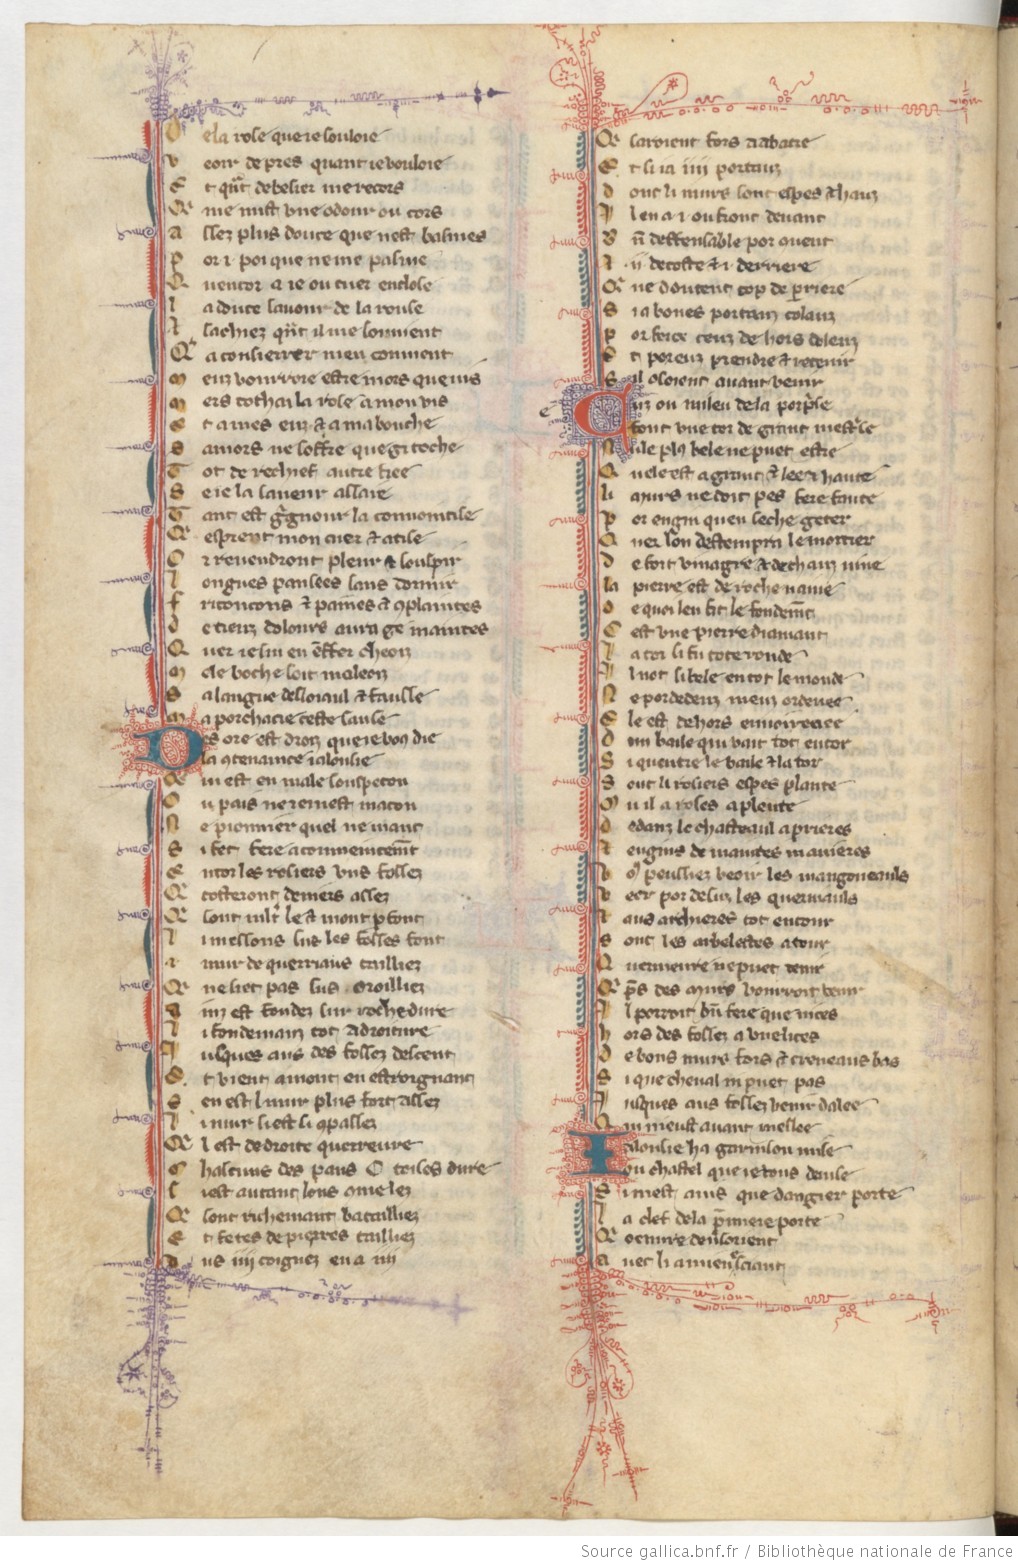 De la rose que ie souloie
veoir de pres quant ie vouloie
Et q̃nt de beisier me recors
Qe me mist vne odour ou cors
assez plus douce que nest basmes
por i poi que ne me pasme
Qencor a ie ou cuer enclose
la douce sauour de la rouse
sachiez q̃nt il me souuient
Qe a consierrer men conuient
meuz vourroie estre mors que uis
mers tocha la rose a mon vis
et a mes euz & a ma bouche
samors ne soffre que gi toche
Tot de rechief autre fiee
Se ie la saueur assaie
Tant est g̃ignour la conuoitise
Qe esprent mon cuer & atise
Or reuendront pleur & souspir
longues pansees sans dormir
fritoncons & paines & 9plaintes
de tieuz dolours aurai ge maintes
Quer ie sui en enfer cheoiz
male boche soit maleoiz
sa langue desloiaul & fausse
ma porchacie ceste sause
Des ore est droiz que ie vos die
la 9tenance ialousie
Qe iu est en male souspecon
Ou pais ne remest macon
Ne pionnier quel ne mant
Si fet fere a commencemt
Entor les rosiers vns fossez
Qe cosferont deniers assez
Qe sont mlt le & mont p̃font
li messons sus les fosses font
i mur de querriaus tailliez
Qe ne siet pas sus croilliez
ainz est fondez sur roche dure
li fondemanz tot a droiture
iusques aus des fossez descent
Et vient amont en estroignant
Sen est luuur plus fort assez
li murs si est si 9passez
Qe l est de droite querreure
Chascuns des pans c toises dure
Si est autant lons come lez
Qe sont richemant batailliez
Et fetes de pierres tailliez
Aus iiij coignez en a iiij
Qe saroient fors a abatre
Et si ia iiij portauz
dont li murs sont espes & hauz
Il en a i ou front deuant
Bñ deffensable por auent
Et ij de coste & i derriere
Qe ne doutent cop de p̃riere
Si a bones portauz colanz
por ferre ceuz de hors dolenz
Et por euz prendre & retenir
Sil osoient auant venir
Enz ou milieu de la porp̃se
font vne tor de grant mest̃ise
Nule pl9 bele ne puet estre
Quele est a grant & lee & haute
li murs ne doit pes fere faute
por engin quen seche geter
Quer lon destempra le mortier
de fort vinagre & de chauz viue
la pierre est de roche naiue
de quoi len fit le fondem̃t
Cest vne pierre diamant
la tor si fu tote ronde
Il not si bele en tot le monde
Ne por dedenz meuz ordenee
Ele est dehors enuironee
dun baile qui vait tot entor
Si quentre le baile & la tor
Sont li rosiers espes plante
Ou il a roses a plente
dedanz le chasteaul a prieres
Et engins de maintes manieres
vo9 peussiez veoir les mangoneauls
veer por desus les quernauls
Et aus archieres tot entour
sont les arbelestes a tour
Qarmeure ne puet tenir
Qe p̃s des murs vourroit venir
Il porroit bñ fere que nices
hors des fossez a vne lices
de bons murs fors & creneaus bas
Si que cheual ni puet pas
Iusques aus fossez venir dalee
Quil neust auant mellee
Ialousie ha garnison mise
ou chastel que ie vous deuise
Si mest auis que dangier porte
la clef de la p̃miere porte
Qe oeuure deus orient
auec li a mien esciant